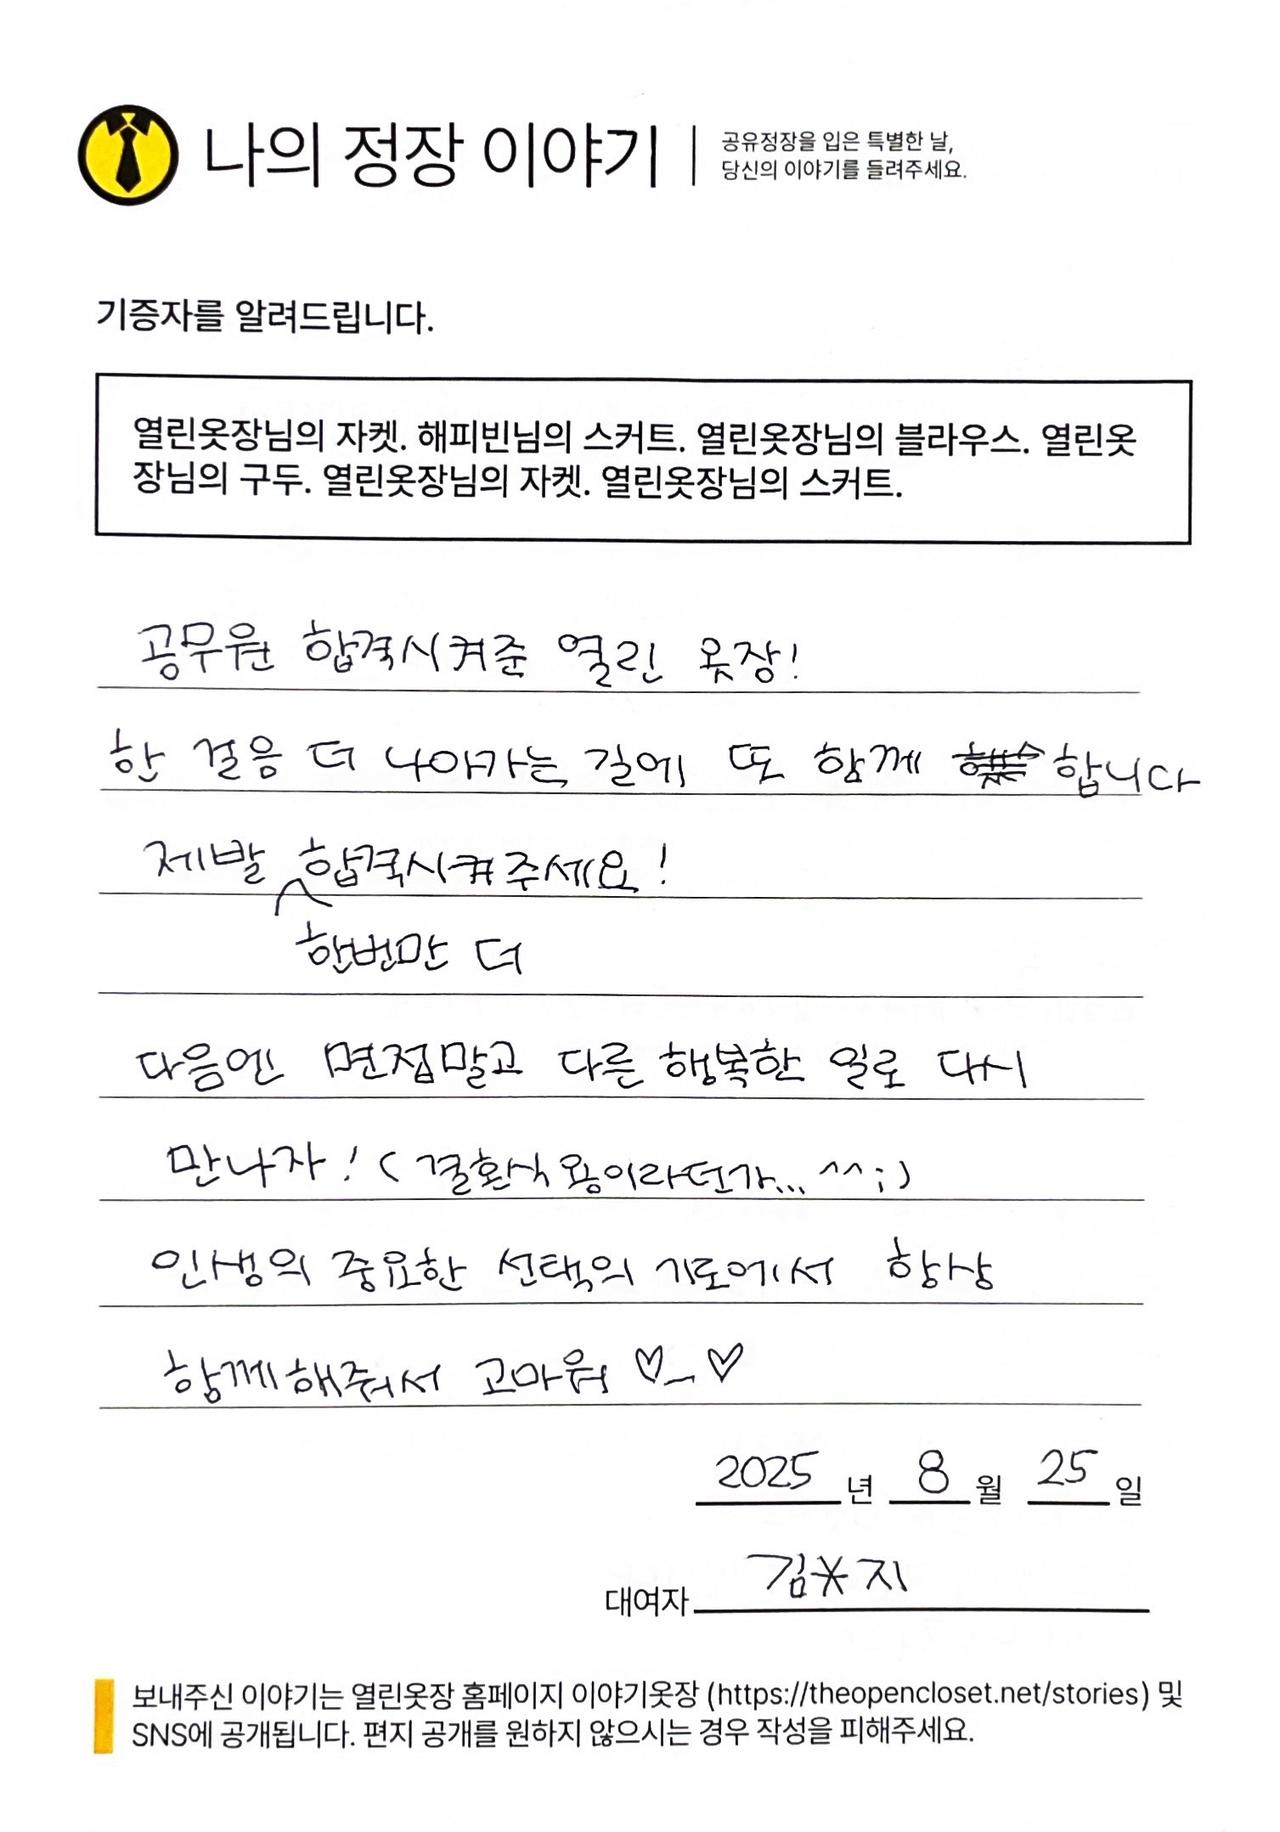 나의 정장 이야기
공유정장을 입은 특별한 날,
당신의 이야기를 들려주세요.
기증자를 알려드립니다.
열린옷장님의 자켓. 해피빈님의 스커트. 열린옷장님의 블라우스. 열린옷
장님의 구두. 열린옷장님의 자켓. 열린옷장님의 스커트.
공무원 합격시켜준 열린 옷장!
한 걸음 더 나아가는 길에 또 함께 합니다
제발 합격시켜주세요!
한번만 더
다음엔 면접말고 다른 행복한 일로 다시
만나자! (결혼식용이라던가... ^^;)
인생의 중요한 선택의 기로에서 항상
함께해줘서 고마워 ♡_♡
2025 년 8 월 25 일
대여자 김*지
보내주신 이야기는 열린옷장 홈페이지 이야기옷장 (https://theopencloset.net/stories) 및
SNS에 공개됩니다. 편지 공개를 원하지 않으시는 경우 작성을 피해주세요.